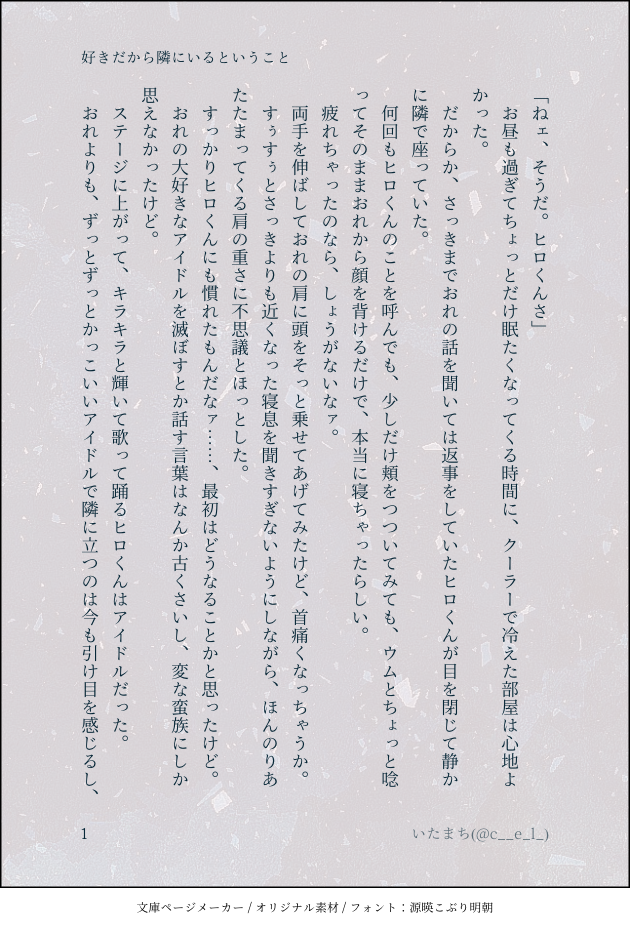 好きだから隣にいるということ
「ねェ、そうだ。ヒロくんさ」
　お昼も過ぎてちょっとだけ眠たくなってくる時間に、クーラーで冷えた部屋は心地よ
かった。
　だからか、さっきまでおれの話を聞いては返事をしていたヒロくんが目を閉じて静か
に隣で座っていた。
　何回もヒロくんのことを呼んでも、少しだけ頬をつついてみても、ウムとちょっと唸
ってそのままおれから顔を背けるだけで、本当に寝ちゃったらしい。
　疲れちゃったのなら、しょうがないなァ。
　両手を伸ばしておれの肩に頭をそっと乗せてあげてみたけど、首痛くなっちゃうか。
　すぅすぅとさっきよりも近くなった寝息を聞きすぎないようにしながら、ほんのりあ
たたまってくる肩の重さに不思議とほっとした。
　すっかりヒロくんにも慣れたもんだなァ……、最初はどうなることかと思ったけど。
　おれの大好きなアイドルを滅ぼすとか話す言葉はなんか古くさいし、変な蛮族にしか
思えなかったけど。
　ステージに上がって、キラキラと輝いて歌って踊るヒロくんはアイドルだった。
　おれよりも、ずっとずっとかっこいいアイドルで隣に立つのは今も引け目を感じるし、
1
いたまち(@c__e_l_)
文庫ページメーカー / オリジナル素材 / フォント：源暎こぶり明朝